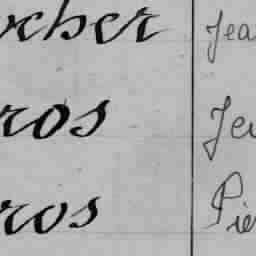 ocher Jea
ros Jea
ros Pie